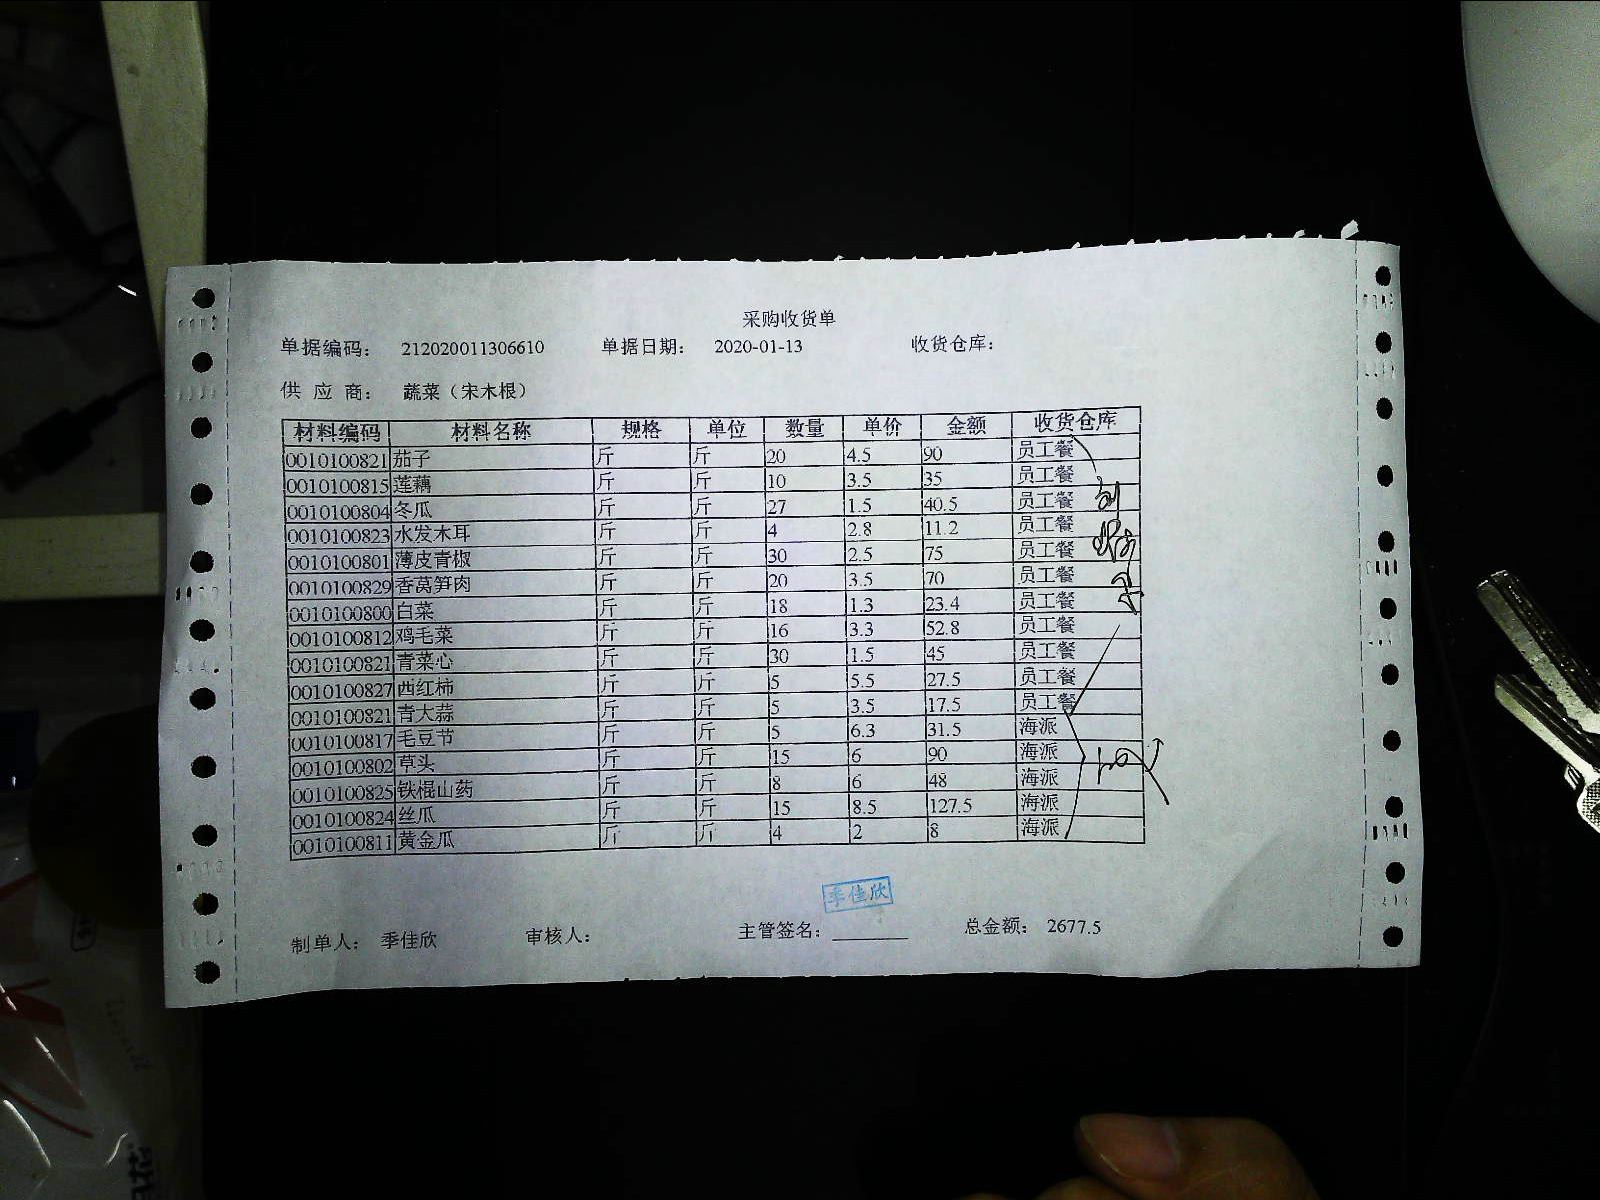 采购收货单
单据编码： 212020011306610 单据日期： 2020-01-13 收货仓库：
供 应 商： 蔬菜（宋木根）
材料编码 材料名称 规格 单位 数量 单价 金额 收货仓库
0010100821 茄子 斤 斤 20 4.5 90 员工餐
0010100815 莲藕 斤 斤 10 3.5 35 员工餐
0010100804 冬瓜 斤 斤 27 1.5 40.5 员工餐
0010100823 水发木耳 斤 斤 4 2.8 11.2 员工餐
0010100801 薄皮青椒 斤 斤 30 2.5 75 员工餐
0010100829 香莴笋肉 斤 斤 20 3.5 70 员工餐
0010100800 白菜 斤 斤 18 1.3 23.4 员工餐
0010100812 鸡毛菜 斤 斤 16 3.3 52.8 员工餐
0010100821 青菜心 斤 斤 30 1.5 45 员工餐
0010100827 西红柿 斤 斤 5 5.5 27.5 员工餐
0010100821 青大蒜 斤 斤 5 3.5 17.5 员工餐
0010100817 毛豆节 斤 斤 5 6.3 31.5 海派
0010100802 草头 斤 斤 15 6 90 海派
0010100825 铁棍山药 斤 斤 8 6 48 海派
0010100824 丝瓜 斤 斤 15 8.5 127.5 海派
0010100811 黄金瓜 斤 斤 4 2 8 海派
季佳欣
制单人： 季佳欣 审核人： 主管签名： 总金额： 2677.5